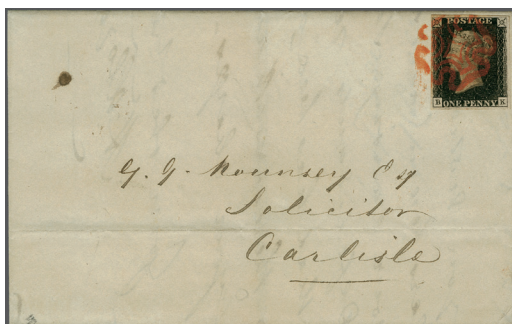 POSTAGE
B K
ONE PENNY
G. G. Mounsey Esq
Solicitor
Carlisle